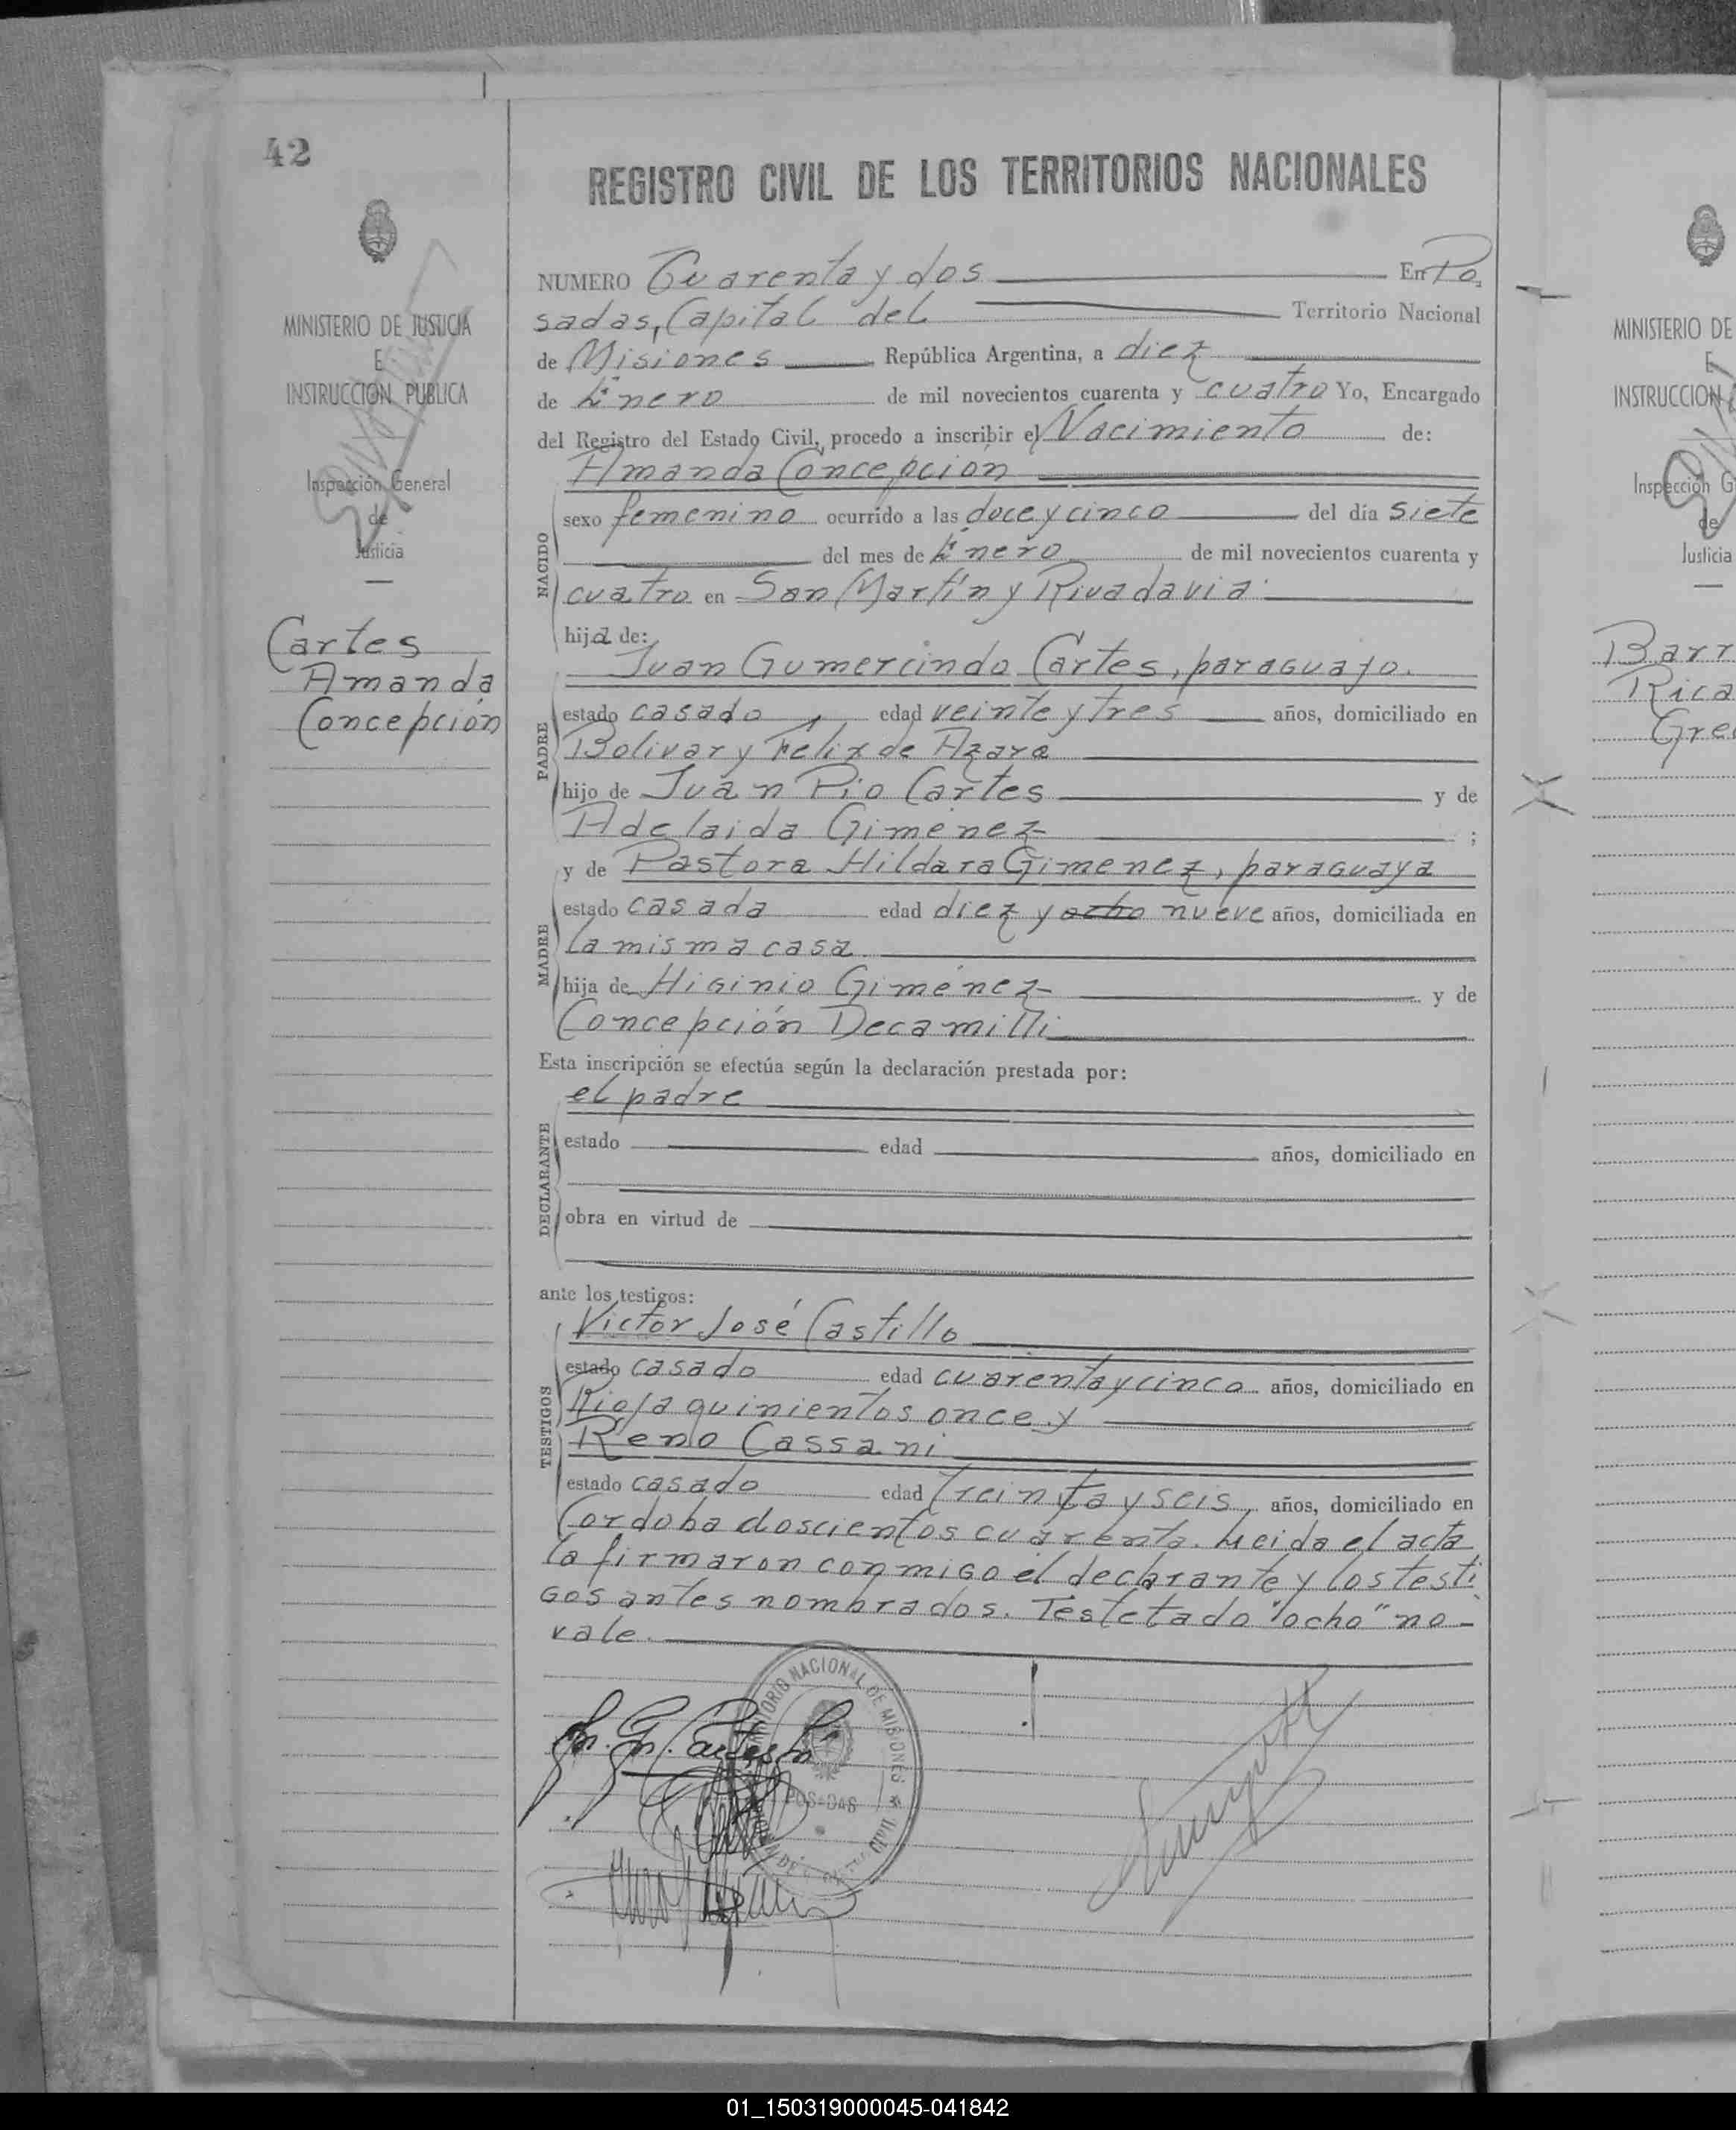 42
REGISTRO CIVIL DE LOS TERRITORIOS NACIONALES
MINISTERIO DE JUSTICIA
E
INSTRUCCION PUBLICA
Inspección General
de
Justicia
Cartes
Amanda
Concepción
NUMERO Cuarenta y dos En Po
sadas, Capital del Territorio Nacional
de Misiones República Argentina, a diez
de Enero de mil novecientos cuarenta y cuatro Yo, Encargado
del Registro del Estado Civil, procedo a inscribir el Nacimiento de:
Amanda Concepción
NACIDO
sexo femenino ocurrido a las doce y cinco del día siete
del mes de Enero de mil novecientos cuarenta y
cuatro en San Martín y Rivadavia.
hija de:
Juan Gumercindo Cartes, paraguayo.
PADRE
estado casado, edad veinte y tres años, domiciliado en
Bolivar y Félix de Azara
hijo de Juan Pio Cartes y de
Adelaida Gimenez ;
y de Pastora Hildara Gimenez, paraguaya
MADRE
estado casada edad diez y ocho nueve años, domiciliada en
la misma casa
hija de Higinio Giménez y de
Concepción Decamilli
Esta inscripción se efectúa según la declaración prestada por:
el padre
DECLARANTE
estado edad años, domiciliado en
obra en virtud de
ante los testigos:
Victor José Castillo
TESTIGOS
estado casado edad cuarenta y cinco años, domiciliado en
Rioja quinientos once y
Reno Cassani
estado casado edad treinta y seis, años, domiciliado en
Cordoba doscientos cuarenta. Leida el acta
la firmaron conmigo el declarante y los testi
gos antes nombrados. Testetado "ocho" no
vale.
TERRITORIO NACIONAL DE MISIONES
POSADAS
MINISTERIO DE
E
INSTRUCCION
Inspección G
de
Justicia
Barr
Rica
Gre
01_150319000045-041842